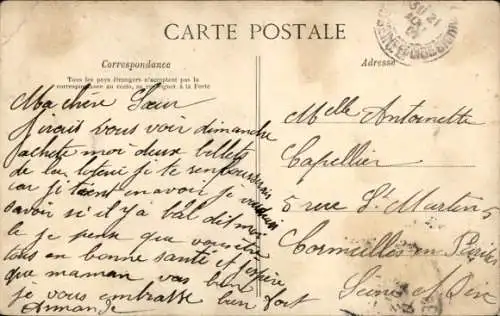 CARTE POSTALE
Correspondance
Tous les pays étrangers n'acceptent pas la
correspondance au recto, se renseigner à la Poste
Adresse
Ma chère Sœur
J'irait vous voir dimanche
achete moi deux billets
de la loterie je te rembourserais
car je tient en avoir je voudrais
savoir si il y a bal dit moi
le je peux que vous être
tous en bonne santé et j'espère
que maman vas bien
je vous embrasse bien fort
Armande
Melle Antoinette
Capellier
5 rue St Martin 5
Cormeilles en Parisis
Seine et Oise